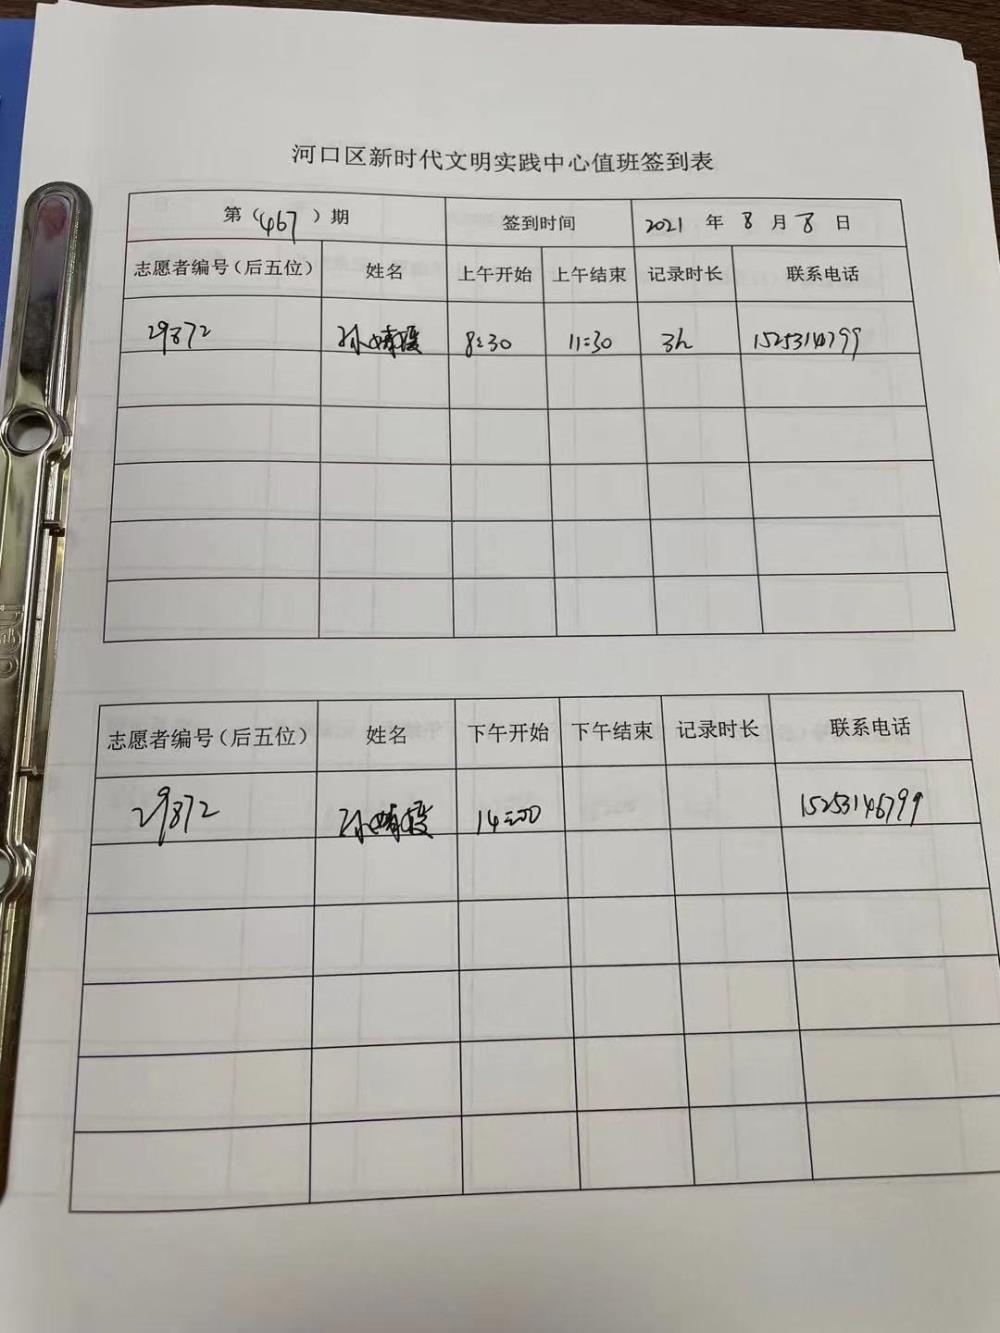 河口区新时代文明实践中心值班签到表
第（467）期 签到时间 2021 年 8 月 8 日
志愿者编号（后五位） 姓名 上午开始 上午结束 记录时长 联系电话
29872 孙 8:30 11:30 3h
志愿者编号（后五位） 姓名 下午开始 下午结束 记录时长 联系电话
29872 孙 14:00 15253146799